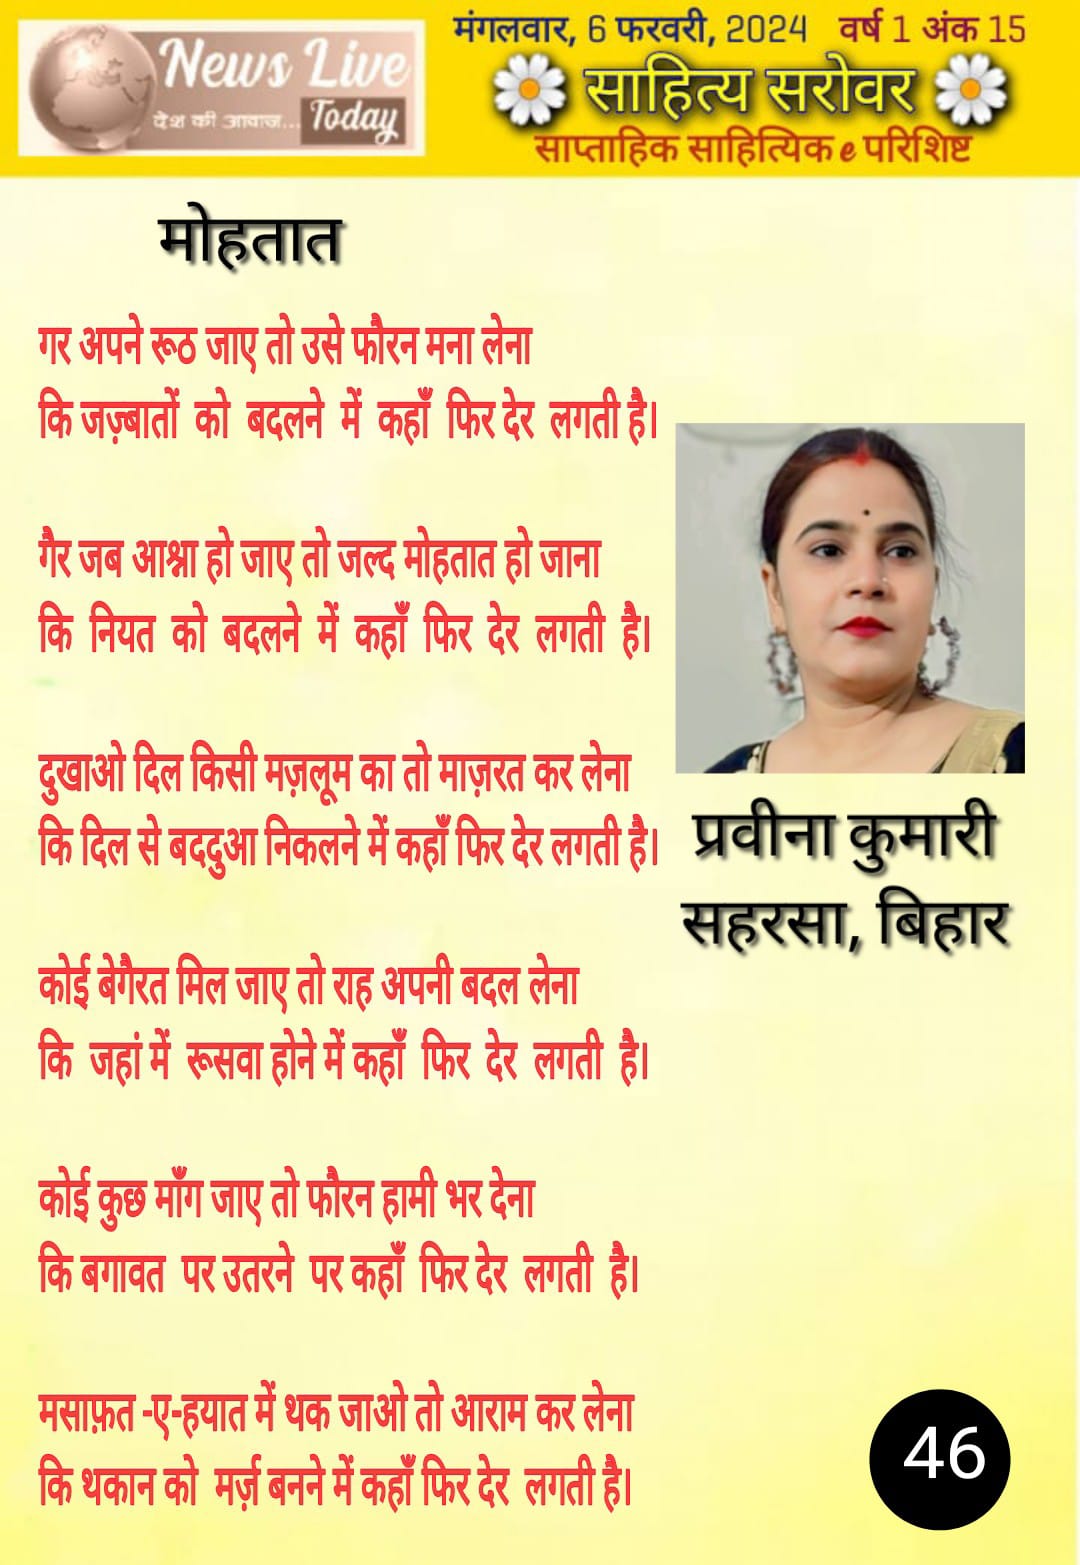 News Live
Today
देश की आवाज...
मंगलवार, 6 फरवरी, 2024 वर्ष 1 अंक 15
साहित्य सरोवर
साप्ताहिक साहित्यिक e परिशिष्ट
मोहतात
गर अपने रूठ जाए तो उसे फौरन मना लेना
कि जज़्बातों को बदलने में कहाँ फिर देर लगती है।
गैर जब आश्ना हो जाए तो जल्द मोहतात हो जाना
कि नियत को बदलने में कहाँ फिर देर लगती है।
दुखाओ दिल किसी मज़लूम का तो माज़रत कर लेना
कि दिल से बददुआ निकलने में कहाँ फिर देर लगती है।
कोई बेगैरत मिल जाए तो राह अपनी बदल लेना
कि जहां में रूसवा होने में कहाँ फिर देर लगती है।
कोई कुछ माँग जाए तो फौरन हामी भर देना
कि बगावत पर उतरने पर कहाँ फिर देर लगती है।
मसाफ़त -ए-हयात में थक जाओ तो आराम कर लेना
कि थकान को मर्ज़ बनने में कहाँ फिर देर लगती है।
प्रवीना कुमारी
सहरसा, बिहार
46